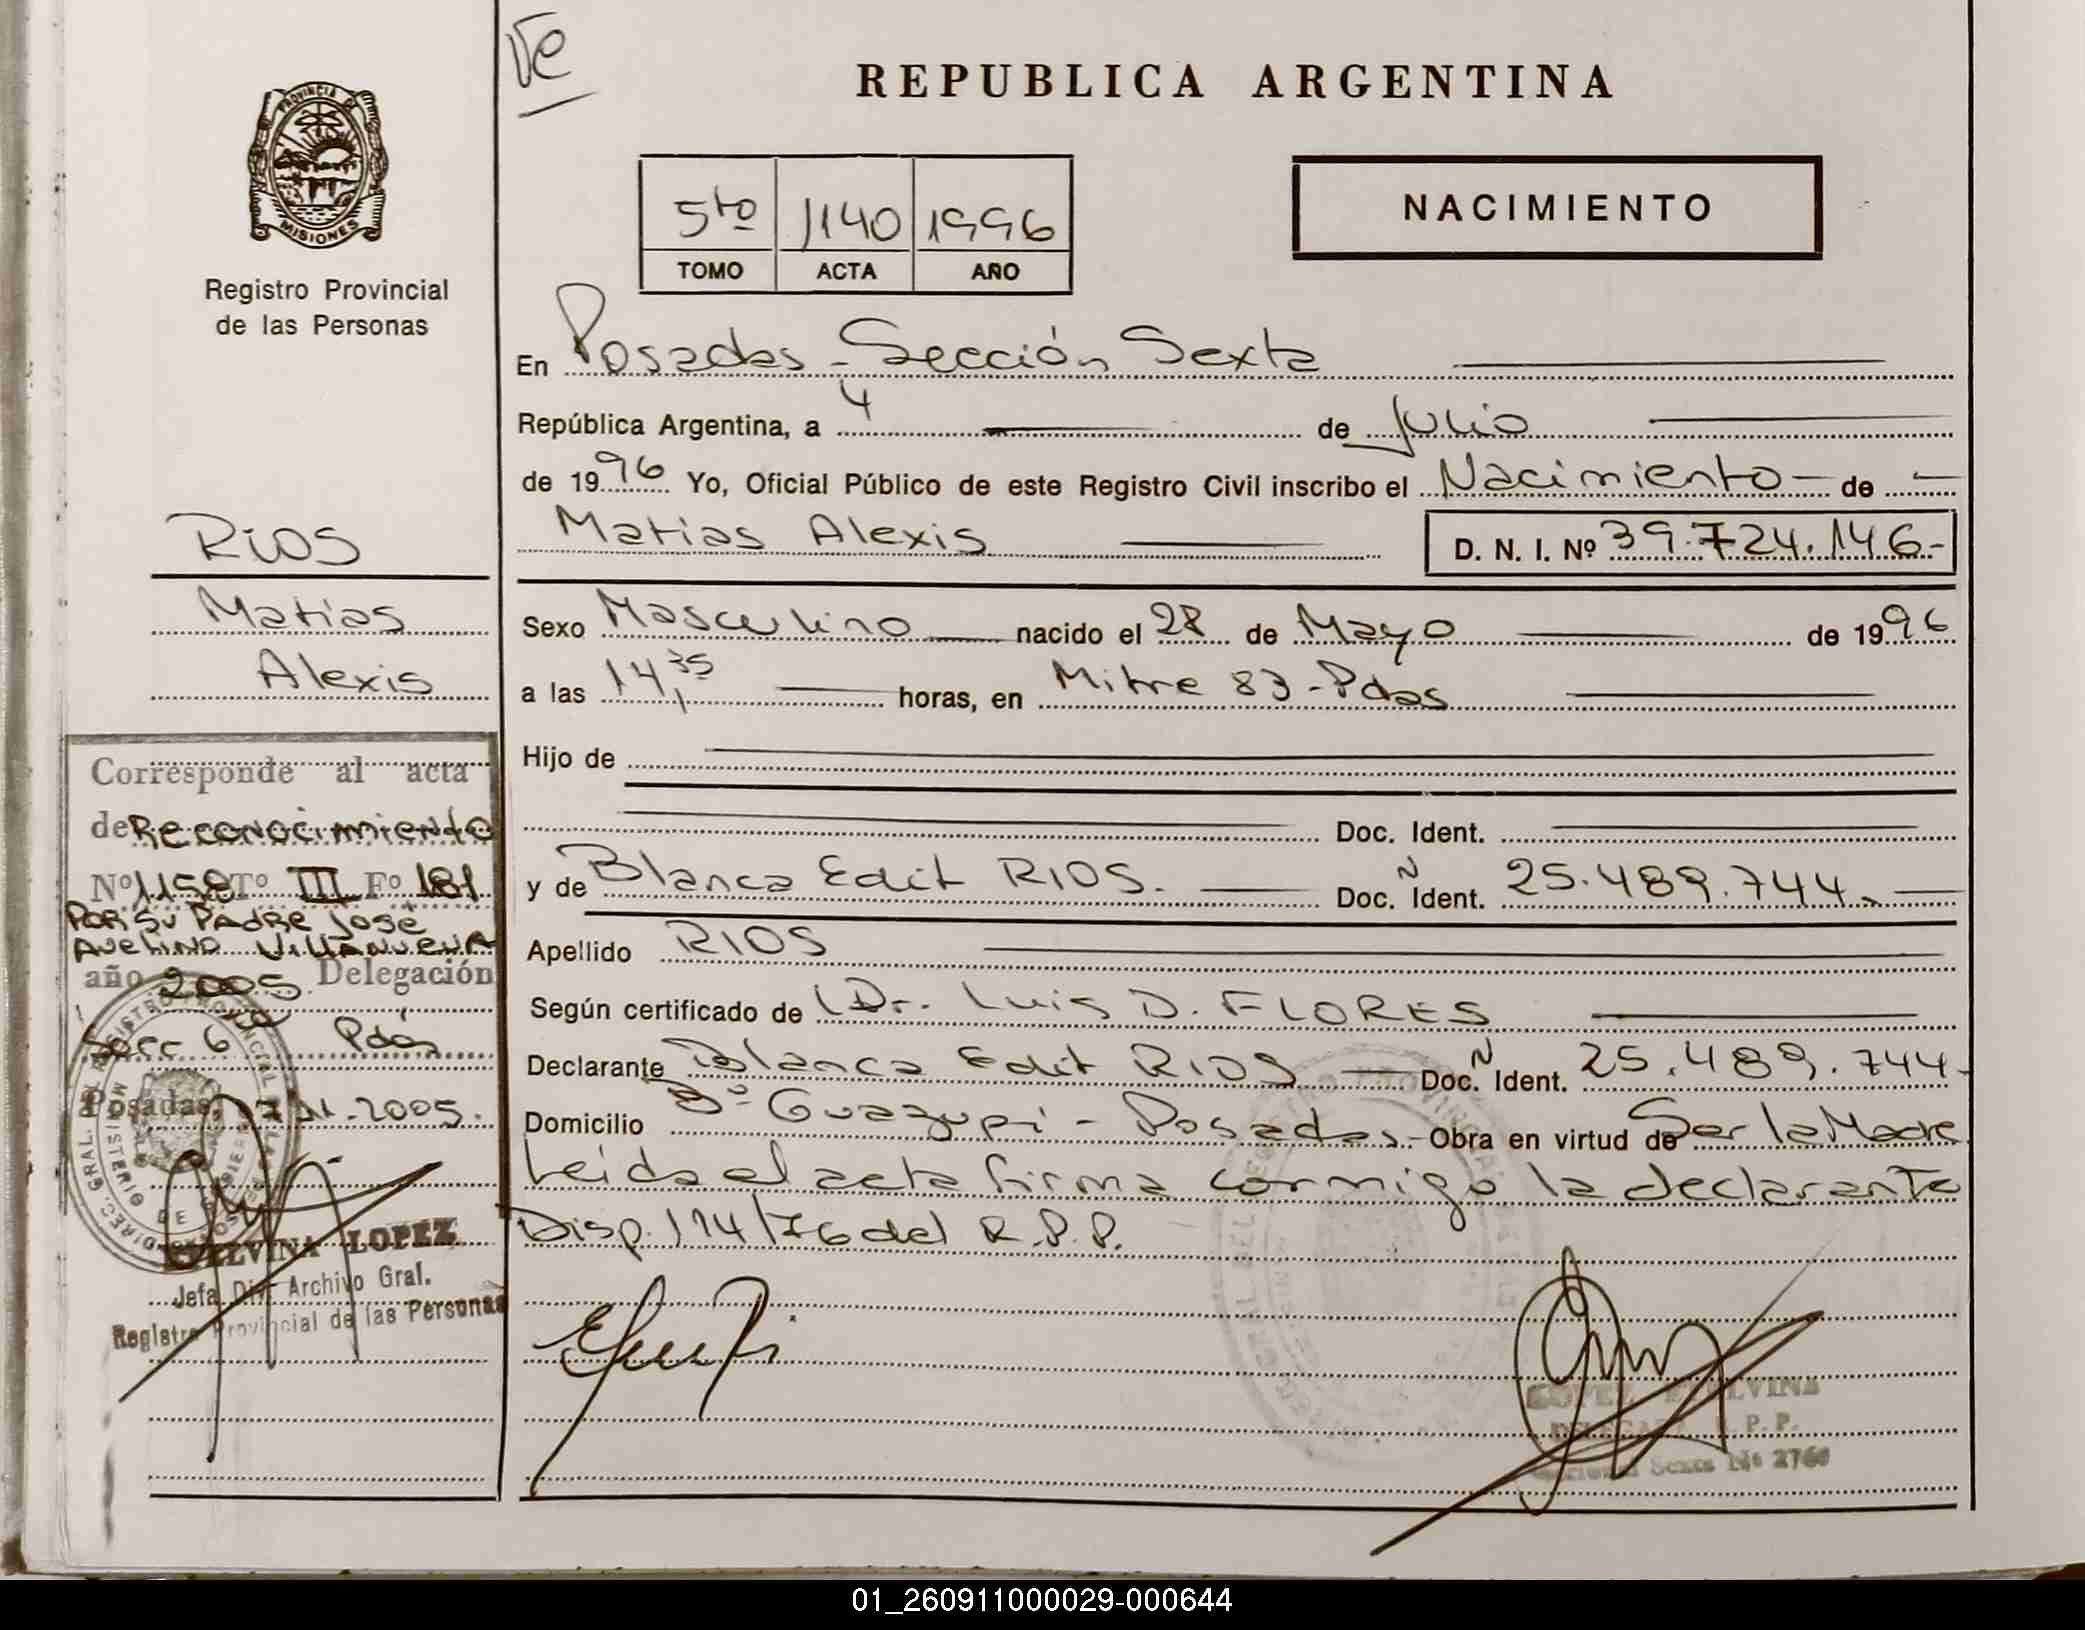 Ve
REPUBLICA ARGENTINA
PROVINCIA DE
MISIONES
Registro Provincial
de las Personas
5to 1140 1996
TOMO ACTA AÑO
NACIMIENTO
En Posadas - Sección Sexta
República Argentina, a 4 de Julio
de 1996 Yo, Oficial Público de este Registro Civil inscribo el Nacimiento - de -
Matias Alexis D. N. I. Nº 39.724.146-
Sexo Masculino nacido el 28 de Mayo de 1996
a las 14,35 horas, en Mitre 83 - Pdas
Hijo de
Doc. Ident.
y de Blanca Edit RIOS. Doc. N Ident. 25.489.744.
Apellido RIOS
Según certificado de Dr. Luis D. FLORES
Declarante Blanca Edit RIOS Doc. N Ident. 25.489.744-
Domicilio Bº Guazupi - Posadas - Obra en virtud de Ser la Madre
Leida el acta firma conmigo la declarante
Disp. 114/76 del R.P.P.
LOPEZ ETELVINA
DELEGADA R. P. P.
Sexta Nº 2766
RIOS
Matias
Alexis
Corresponde al acta
de Reconocimiento
Nº 1158 Tº III Fº 181
POR SU PADRE José
AVELINO VILLANUEVA
año 2005 Delegación
Secc 6ta Pdas
Posadas, 17-XI-2005.
ETELVINA LOPEZ
Jefa Div. Archivo Gral.
Registro Provincial de las Personas
01_260911000029-000644